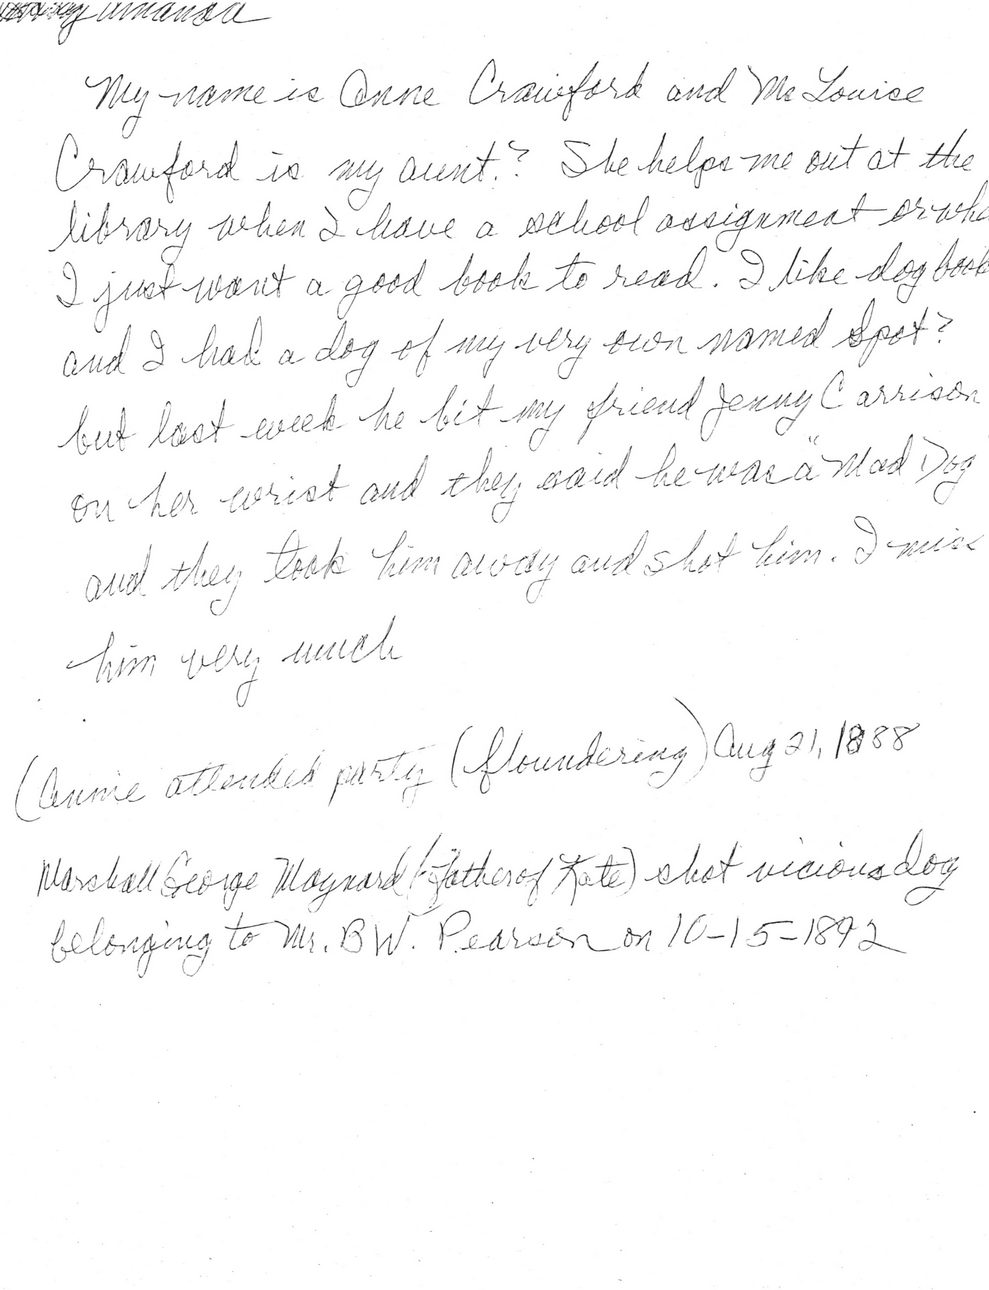 Amanda
My name is Anne Crawford and Ms Louise
Crawford is my aunt.? She helps me out at the
library when I have a school assignment or whe
I just want a good book to read. I like dog book
and I had a dog of my very own named Spot?
but last week he bit my friend Jenny Carrison
on her wrist and they said he was a "Mad Dog
and they took him away and shot him. I miss
him very much
(Annie attended party (floundering) Aug 21, 1888
Marshall George Maynard (father of Kate) shot vicious dog
belonging to Mr. B W. Pearson on 10-15-1892